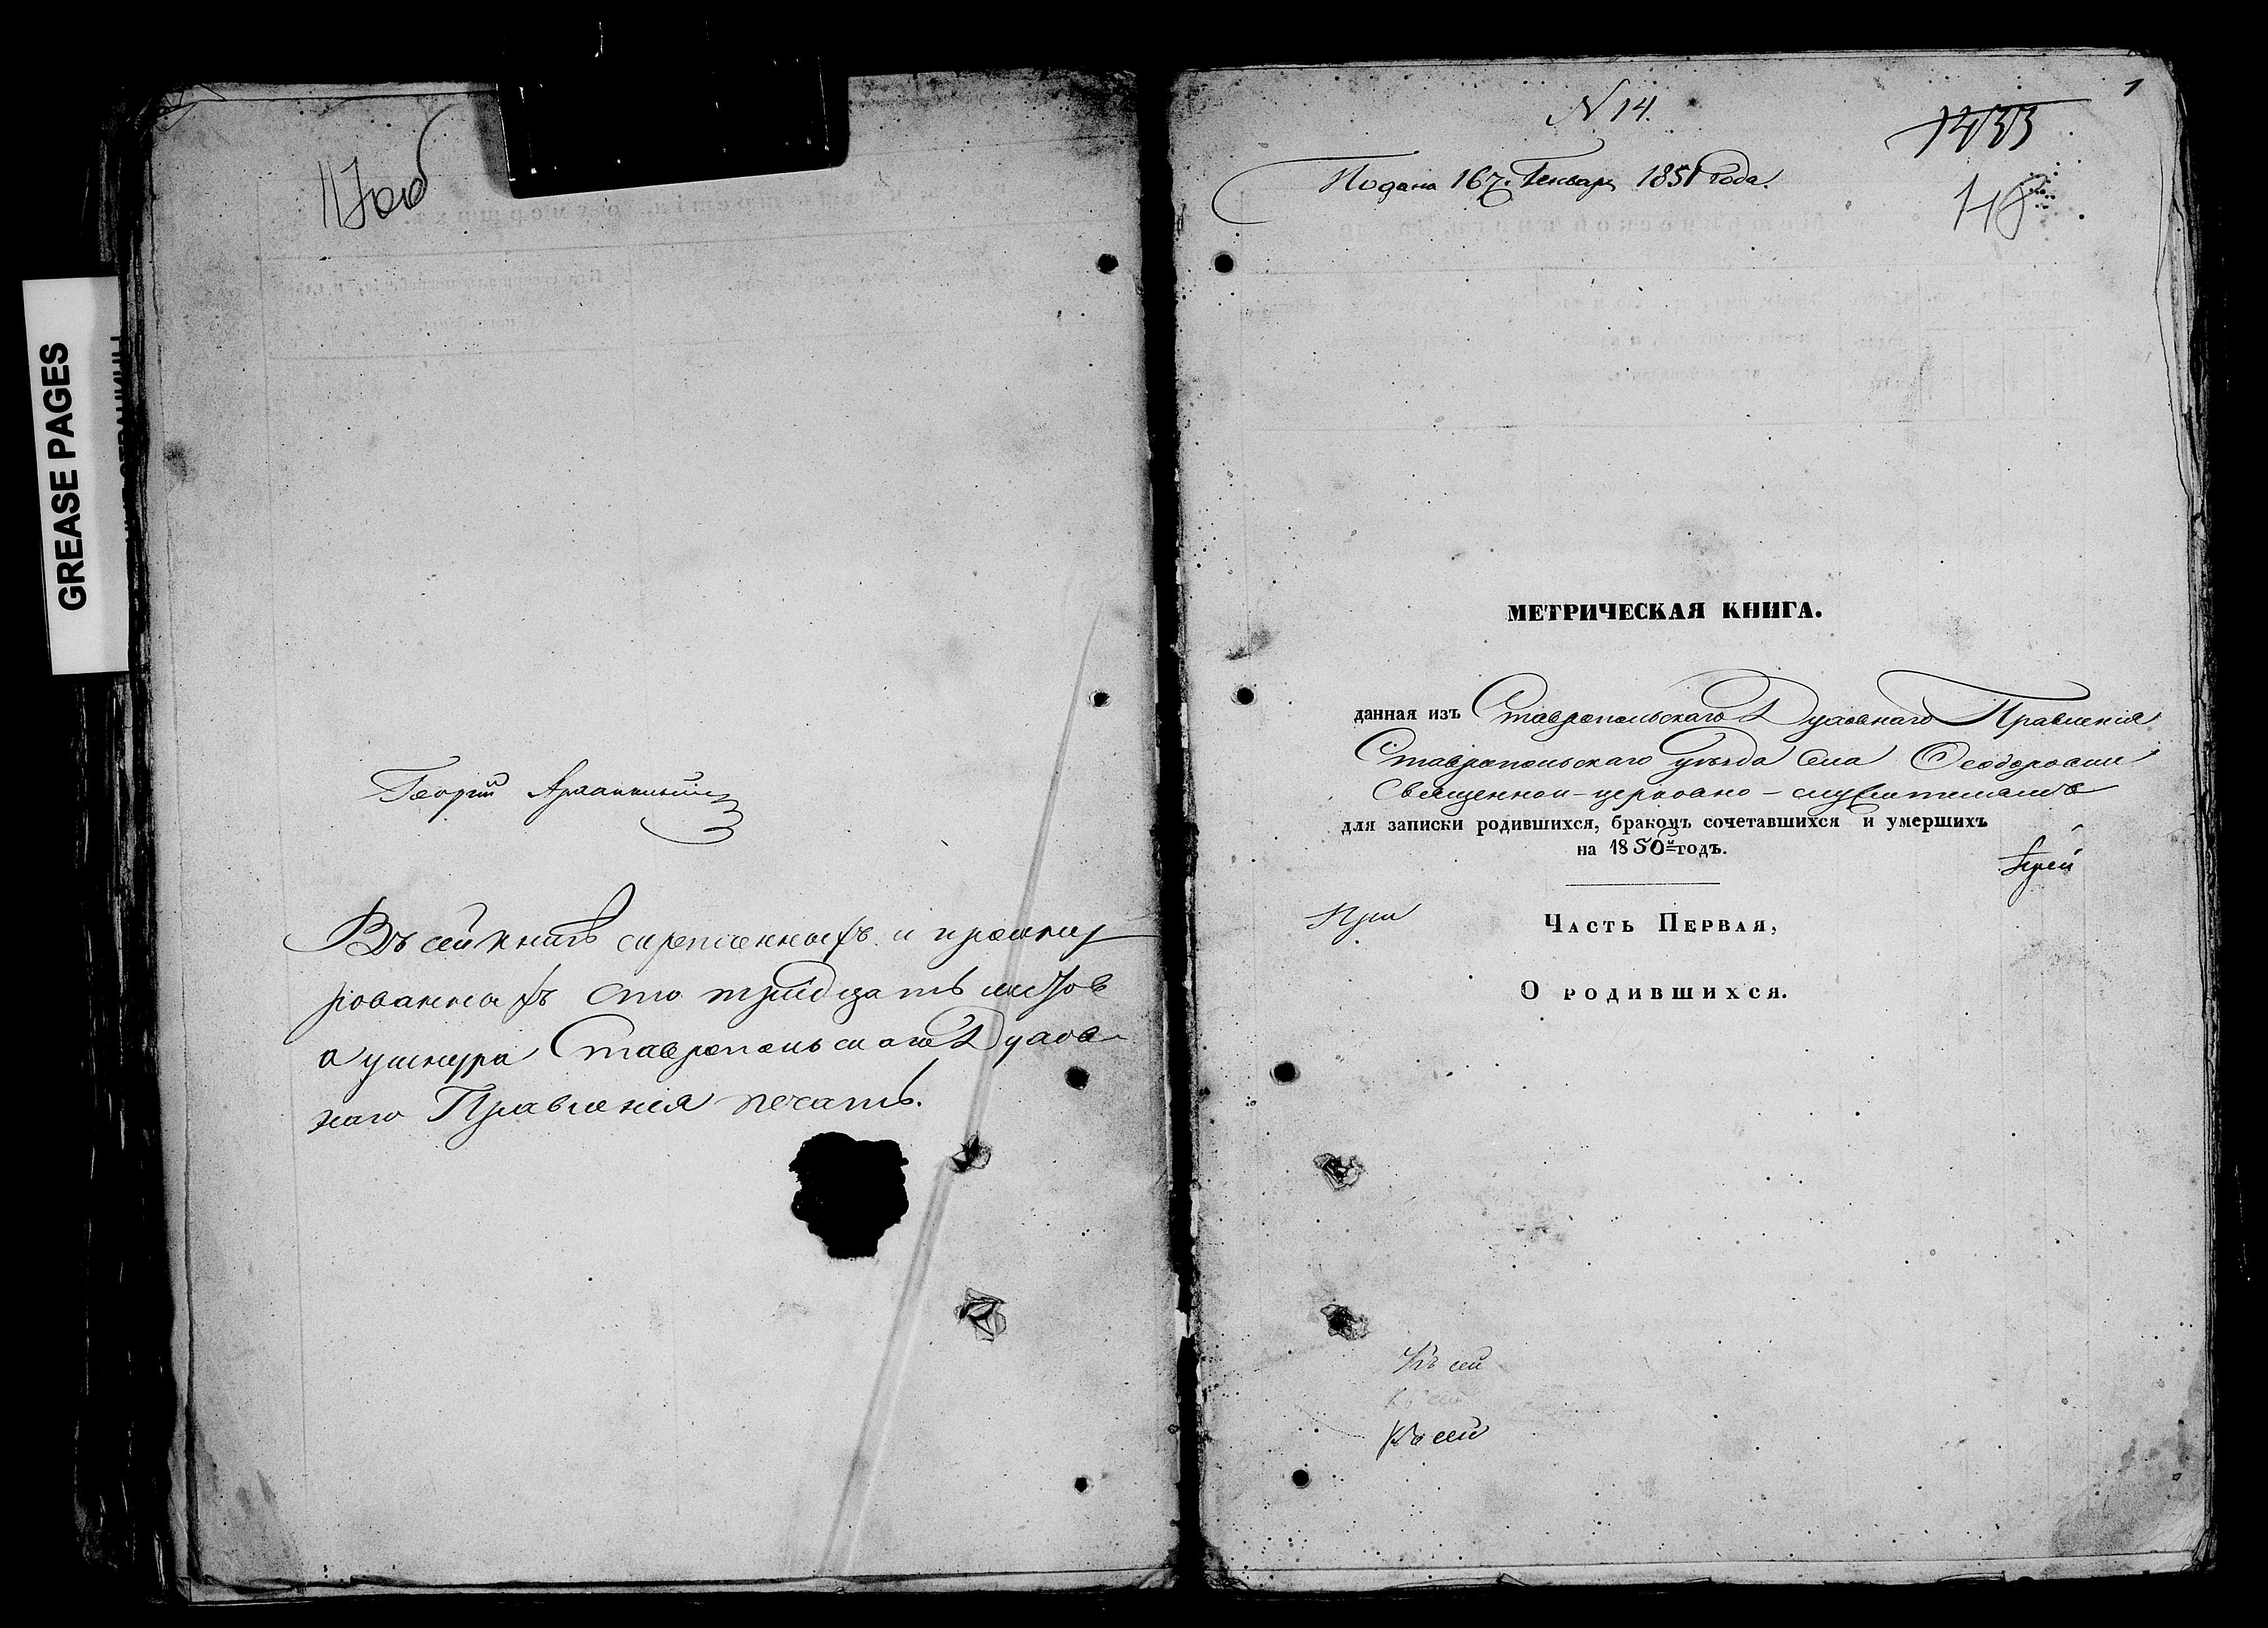 GREASE PAGES
117об
Георгий
Въ сей книгѣ скрепленныхъ и прошну
рованныхъ сто тридцать листов
а у шнура Ставропольскаго Духов-
наго Правления печать.
1
N 14.
1433
Подана 16го Генваря 1851 года.
МЕТРИЧЕСКАЯ КНИГА.
данная изъ Ставропольскаго Духовнаго Правления
Ставропольскаго уѣзда села Феодоровки
Священно-церковно-служителямъ
для записки родившихся, бракомъ сочетавшихся и умершихъ
на 1850й годъ.
При
ЧАСТЬ ПЕРВАЯ,
О РОДИВШИХСЯ.
Къ сей
Къ сей
Къ сей